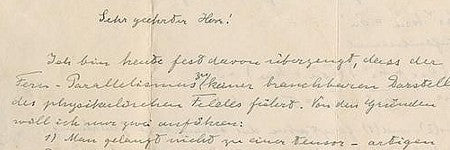 Sehr geehrter Herr!
Ich bin heute fest davon überzeugt, dass der
Fern-Parallelismus zu keiner brauchbaren Darstell
des physikalischen Feldes führt. Von den Gründen
will ich nur zwei anführen:
1) Man gelangt nicht zu einer tensor-artigen